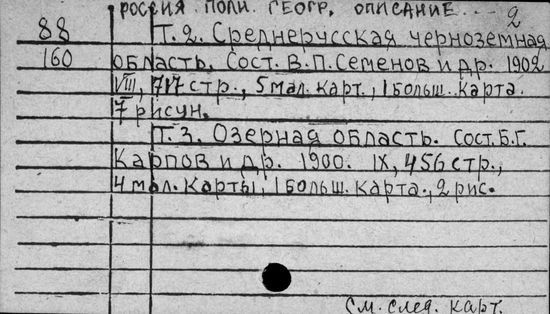 РОССИЯ. ПОЛН. ГЕОГР. ОПИСАНИЕ... 2
88 Т. 2. Среднерусская черноземная
160 область. Сост. В.П. Семенов и др. 1902
VIII, 717 стр., 5 мал. карт., 1 больш. карта.
7 рисун.
Т. 3. Озерная область. Сост. Б.Г.
Карпов и др. 1900. IX, 456 стр.,
4 мал. карты, 1 больш. карта., 2 рис.
См. след. карт.